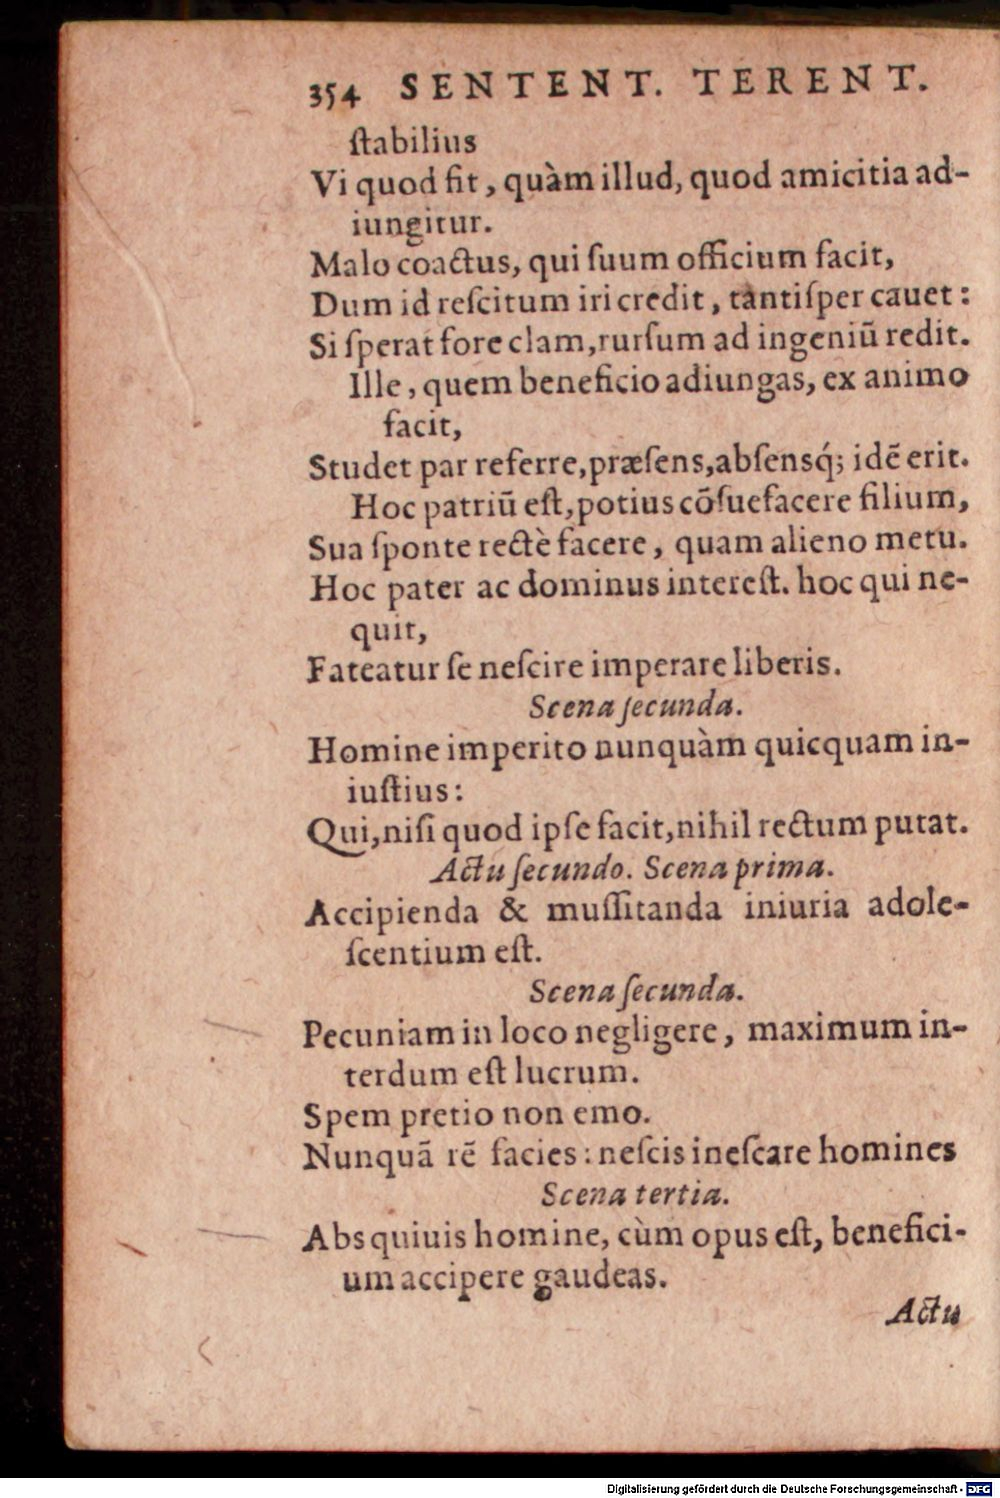 354 SENTENT. TERENT.
ſtabilius
Vi quod fit, quàm illud, quod amicitia ad-
iungitur.
Malo coactus, qui ſuum officium facit,
Dum id reſcitum iri credit, tantiſper cauet:
Si ſperat fore clam, rurſum ad ingeniũ redit.
Ille, quem beneficio adiungas, ex animo
facit,
Studet par referre, præſens, abſensq́; idẽ erit.
Hoc patriũ eſt, potius cõſuefacere filium,
Sua ſponte rectè facere, quam alieno metu.
Hoc pater ac dominus intereſt. hoc qui ne-
quit,
Fateatur ſe neſcire imperare liberis.
Scena ſecunda.
Homine imperito nunquàm quicquam in-
iuſtius:
Qui, niſi quod ipſe facit, nihil rectum putat.
Actu ſecundo. Scena prima.
Accipienda & muſſitanda iniuria adole-
ſcentium eſt.
Scena ſecunda.
Pecuniam in loco negligere, maximum in-
terdum eſt lucrum.
Spem pretio non emo.
Nunquã rẽ facies: neſcis ineſcare homines
Scena tertia.
Abs quiuis homine, cùm opus eſt, benefici-
um accipere gaudeas.
Actu
Digitalisierung gefördert durch die Deutsche Forschungsgemeinschaft - DFG